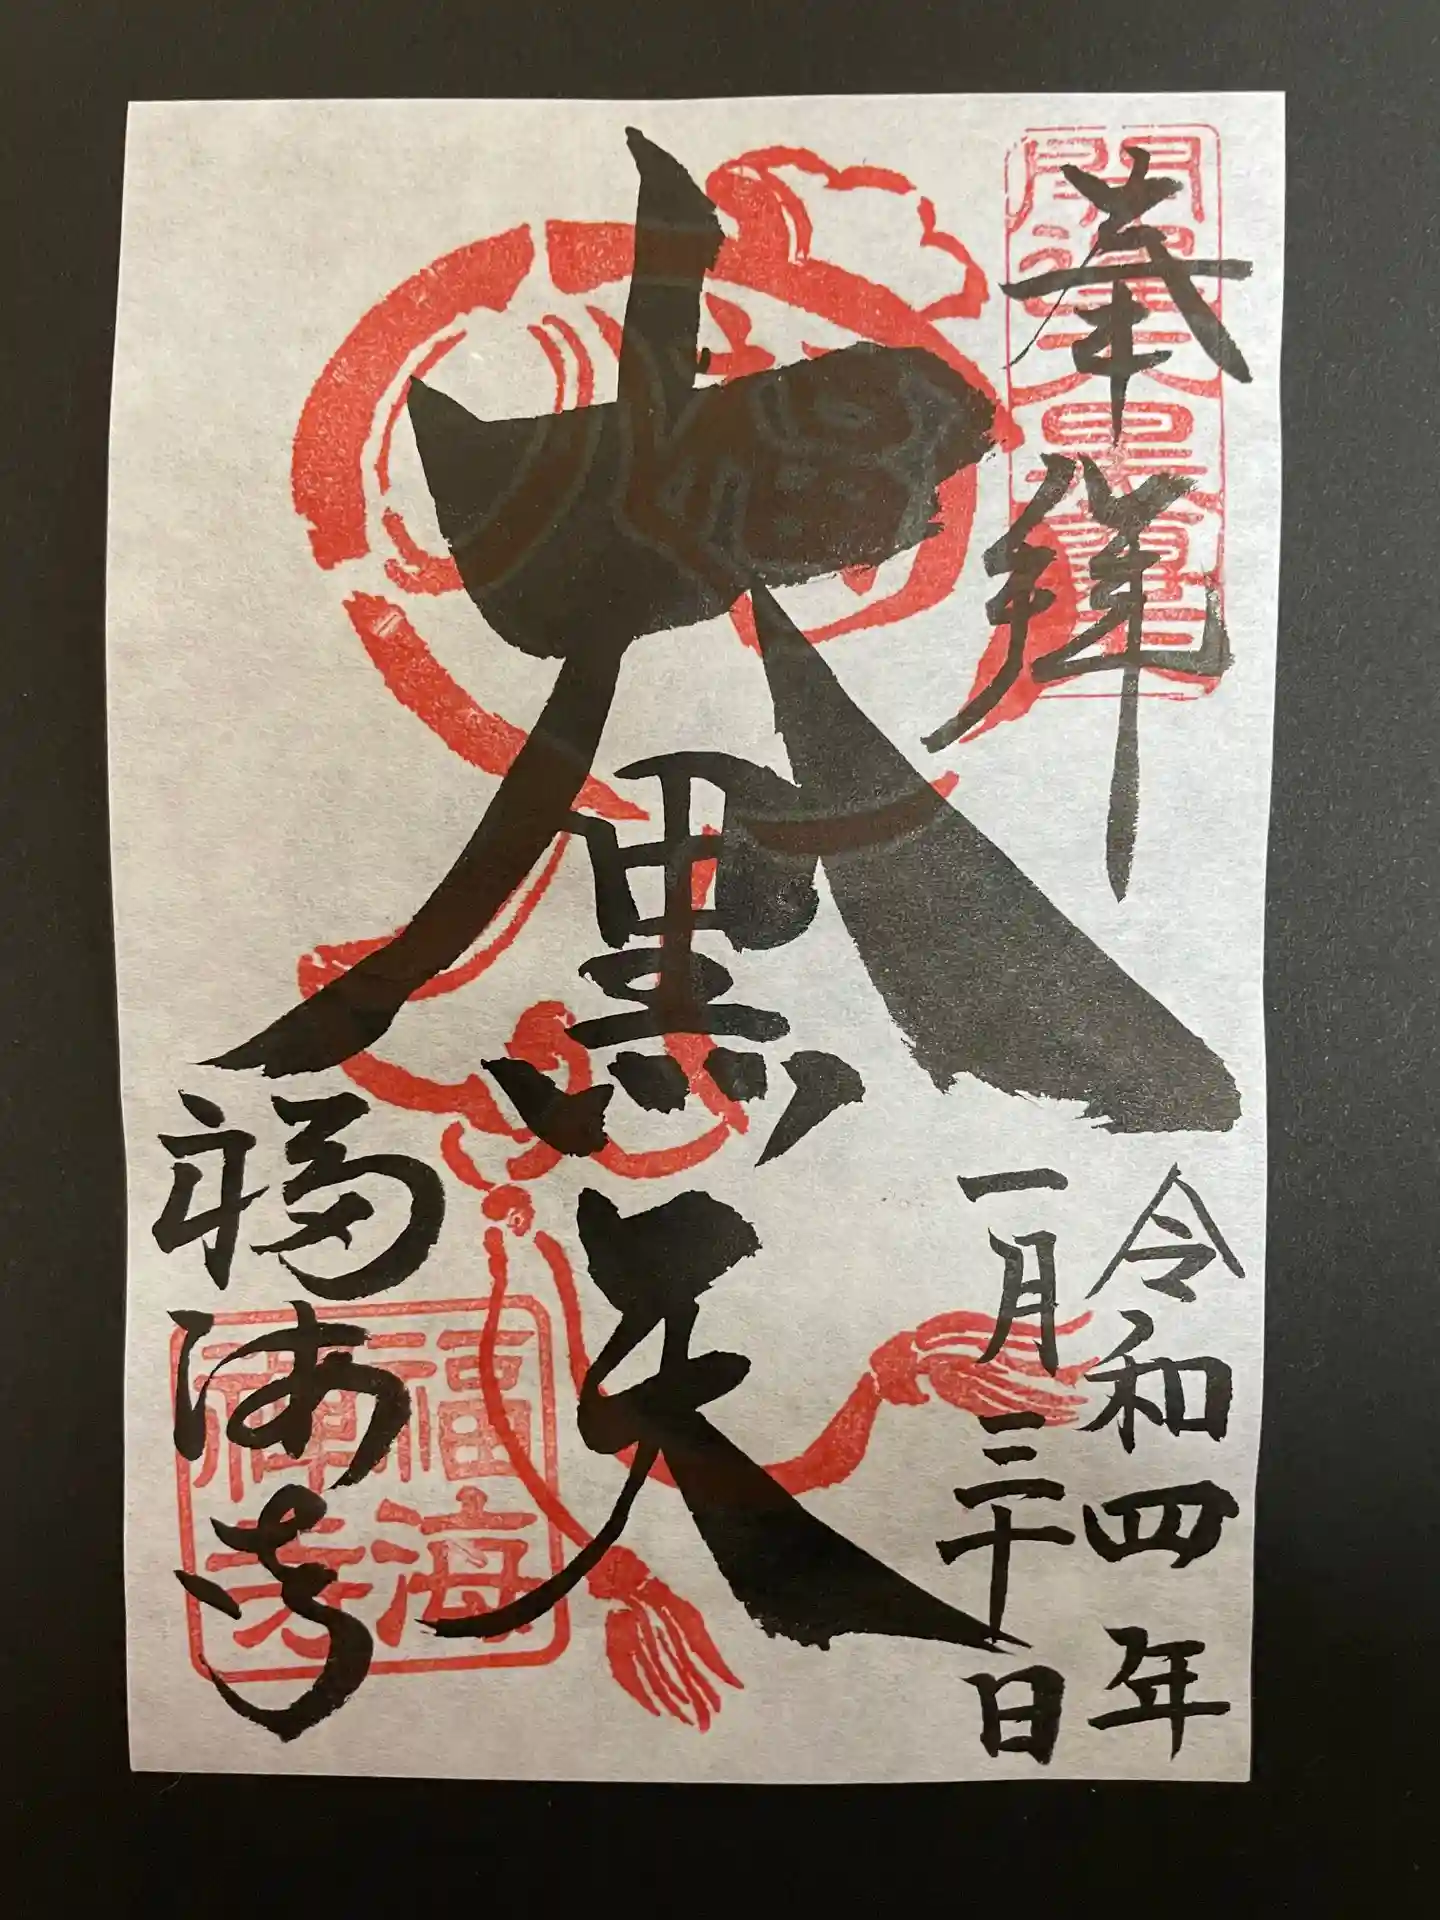 奉拝
令和四年
一月三十日
大黒天
福海寺
福海
禅寺